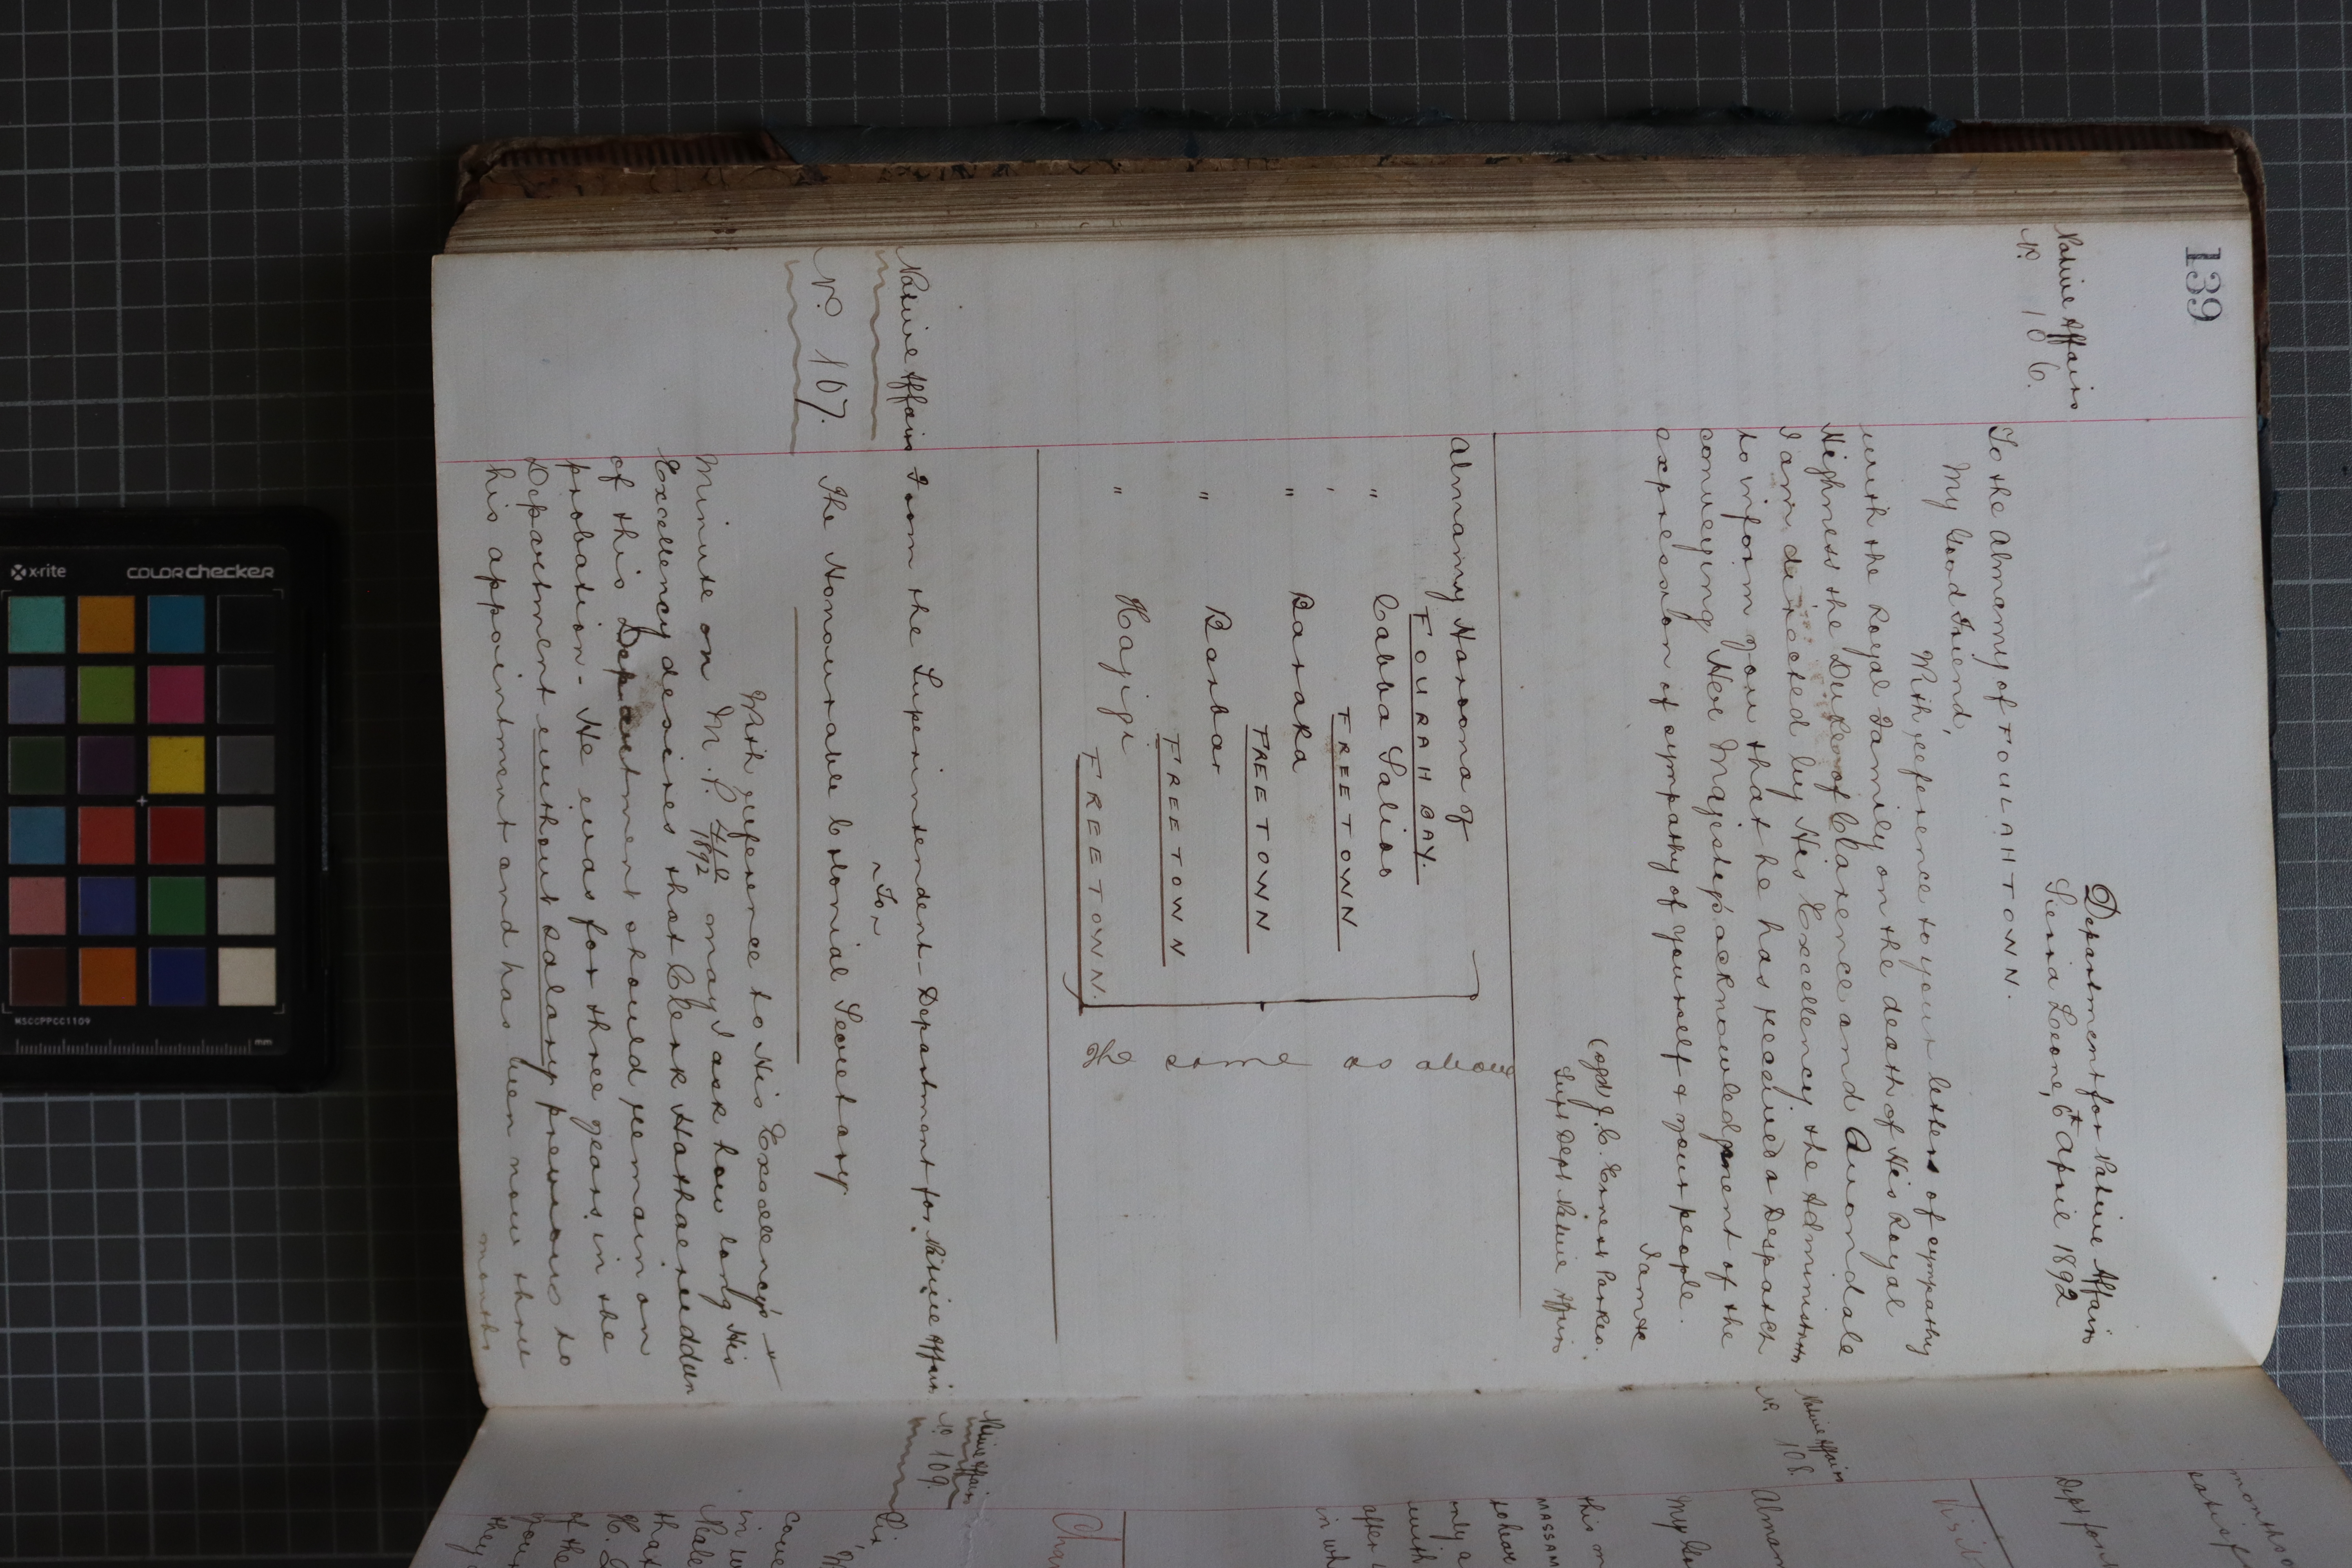 139
Native Affairs
No. 106.
Department for Native Affairs
Sierra Leone, 6th April 1892
To the Almamy of FOULAHTOWN.
My Good Friend,
With reference to your letters of sympathy
with the Royal Family on the death of His Royal
Highness the Duke of Clarence and Avondale
I am directed by His Excellency the Administrator
to inform you that he has received a Despatch
conveying Her Majesty's acknowledgment of the
expression of sympathy of yourself & your people.
I am &c
(sgd) J. C. Ernest Parkes.
Supt Dept Native Affairs
Almamy Haroona of
FOURAH BAY.
" Cabba Salios
' FREETOWN
" Baraka
FREETOWN
" Barbar
FREETOWN
" Hajigi
FREETOWN.
The same as above
Native Affairs
No. 107.
From the Superintendent - Department for Native Affairs
~ To ~
The Honourable Colonial Secretary
With reference to His Excellency's
Minute on M.P. 1892 may I ask how long His
Excellency desires that Clerk
of this Department should remain on
probation - He was for three years in the
Department without salary previous to
his appointment and has been now three
months
Native Affairs
No. 108.
Native Affairs
No. 109.
months
Dept for
My
this m
MASSAM
only a
with
after
in wh
Sir,
in
that
of the
your
they